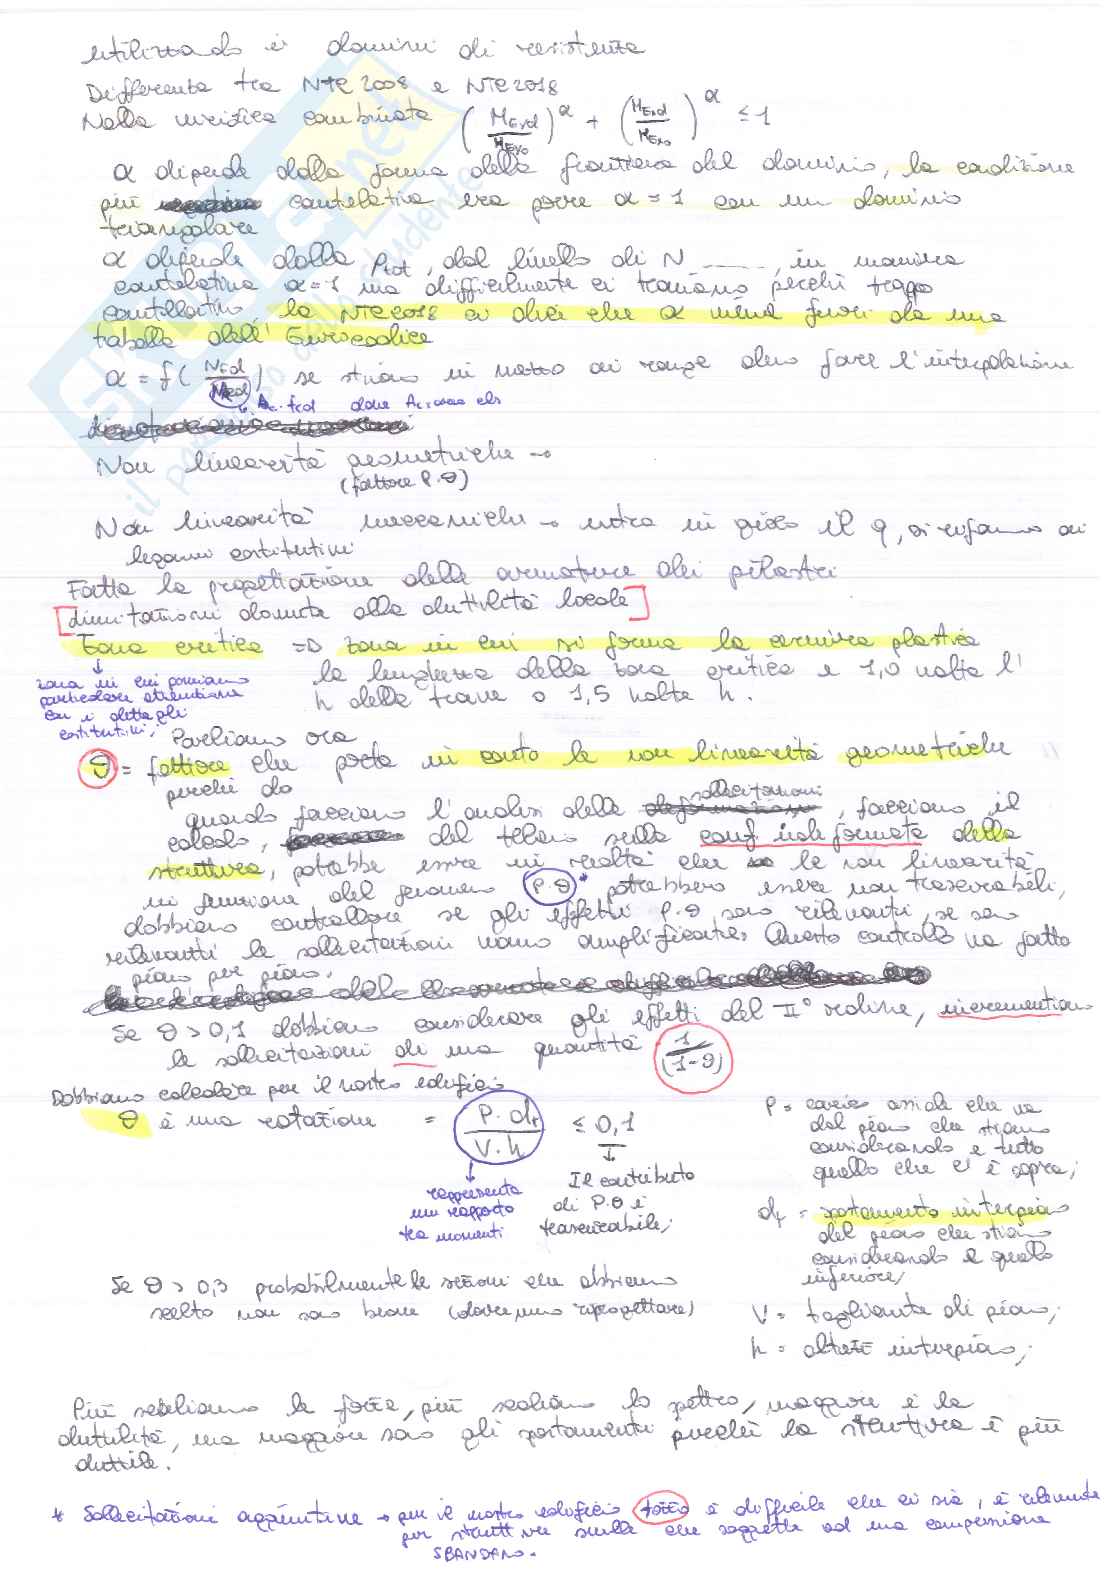 utilizzando i domini di resistenza
Differenza tra NTC 2008 e NTC 2018
Nella verifica combinata (MExd/MExo)^α + (MExd/MExo)^α ≤ 1
α dipende dalla forma della frontiera del dominio, la condizione
più cautelativa era porre α = 1 con un dominio
triangolare
α dipende dalla ρtot, dal livello di N ____, in maniera
cautelativa α = 1 ma difficilmente ci troviamo perchè troppo
cautelativo, la NTC 2018 ci dice che α viene fuori da una
tabella dell' Eurocodice
α = f(NEd/NRcd) se stiamo in mezzo ai range devo fare l'interpolazione
Ac·fcd dove Ac=area cls
Non linearità geometriche →
(fattore P.θ)
Non linearità meccaniche → entra in gioco il q, si rifanno ai
legami costitutivi
Fatta la progettazione delle armature dei pilastri
[limitazioni dovute alla duttilità locale]
Zona critica ⇒ zona in cui si forma la cerniera plastica
la lunghezza della zona critica è 1,0 volte l'
h della trave o 1,5 volte h.
zona in cui poniamo
particolare attenzione
con i dettagli
costruttivi;
Parliamo ora
θ = fattore che porta in conto le non linearità geometriche
perchè da
quando facciamo l'analisi delle sollecitazioni, facciamo il
calcolo, del telaio sulla conf. indeformata della
struttura, potrebbe essere in realtà che le non linearità
in funzione del fenomeno P.θ * potrebbero essere non trascurabili,
dobbiamo controllare se gli effetti P.θ sono rilevanti, se sono
rilevanti le sollecitazioni vanno amplificate. Questo controllo va fatto
piano per piano.
Se θ > 0,1 dobbiamo considerare gli effetti del II° ordine, incrementiamo
le sollecitazioni di una quantità 1/(1-θ)
Dobbiamo calcolare per il nostro edificio
θ è una rotazione = P·dr/V·h ≤ 0,1
rappresenta
un rapporto
tra momenti
Il contributo
di P.θ è
trascurabile;
P = carico assiale che va
dal piano che stiamo
considerando e tutto
quello che c'è sopra;
dr = spostamento interpiano
del piano che stiamo
considerando e quello
inferiore;
V = tagliante di piano;
h = altezza interpiano;
Se θ > 0,3 probabilmente le sezioni che abbiamo
scelto non sono buone (dovremmo riprogettare)
Più scaliamo le forze, più scaliamo lo spettro, maggiore è la
duttilità, ma maggiori sono gli spostamenti perchè la struttura è più
duttile.
* Sollecitazioni aggiuntive → per il nostro edificio tozzo è difficile che ci sia, è rilevante
per strutture snelle che soggette ad una compressione
SBANDANO.
SKUOLA.net
il paradiso dello studente